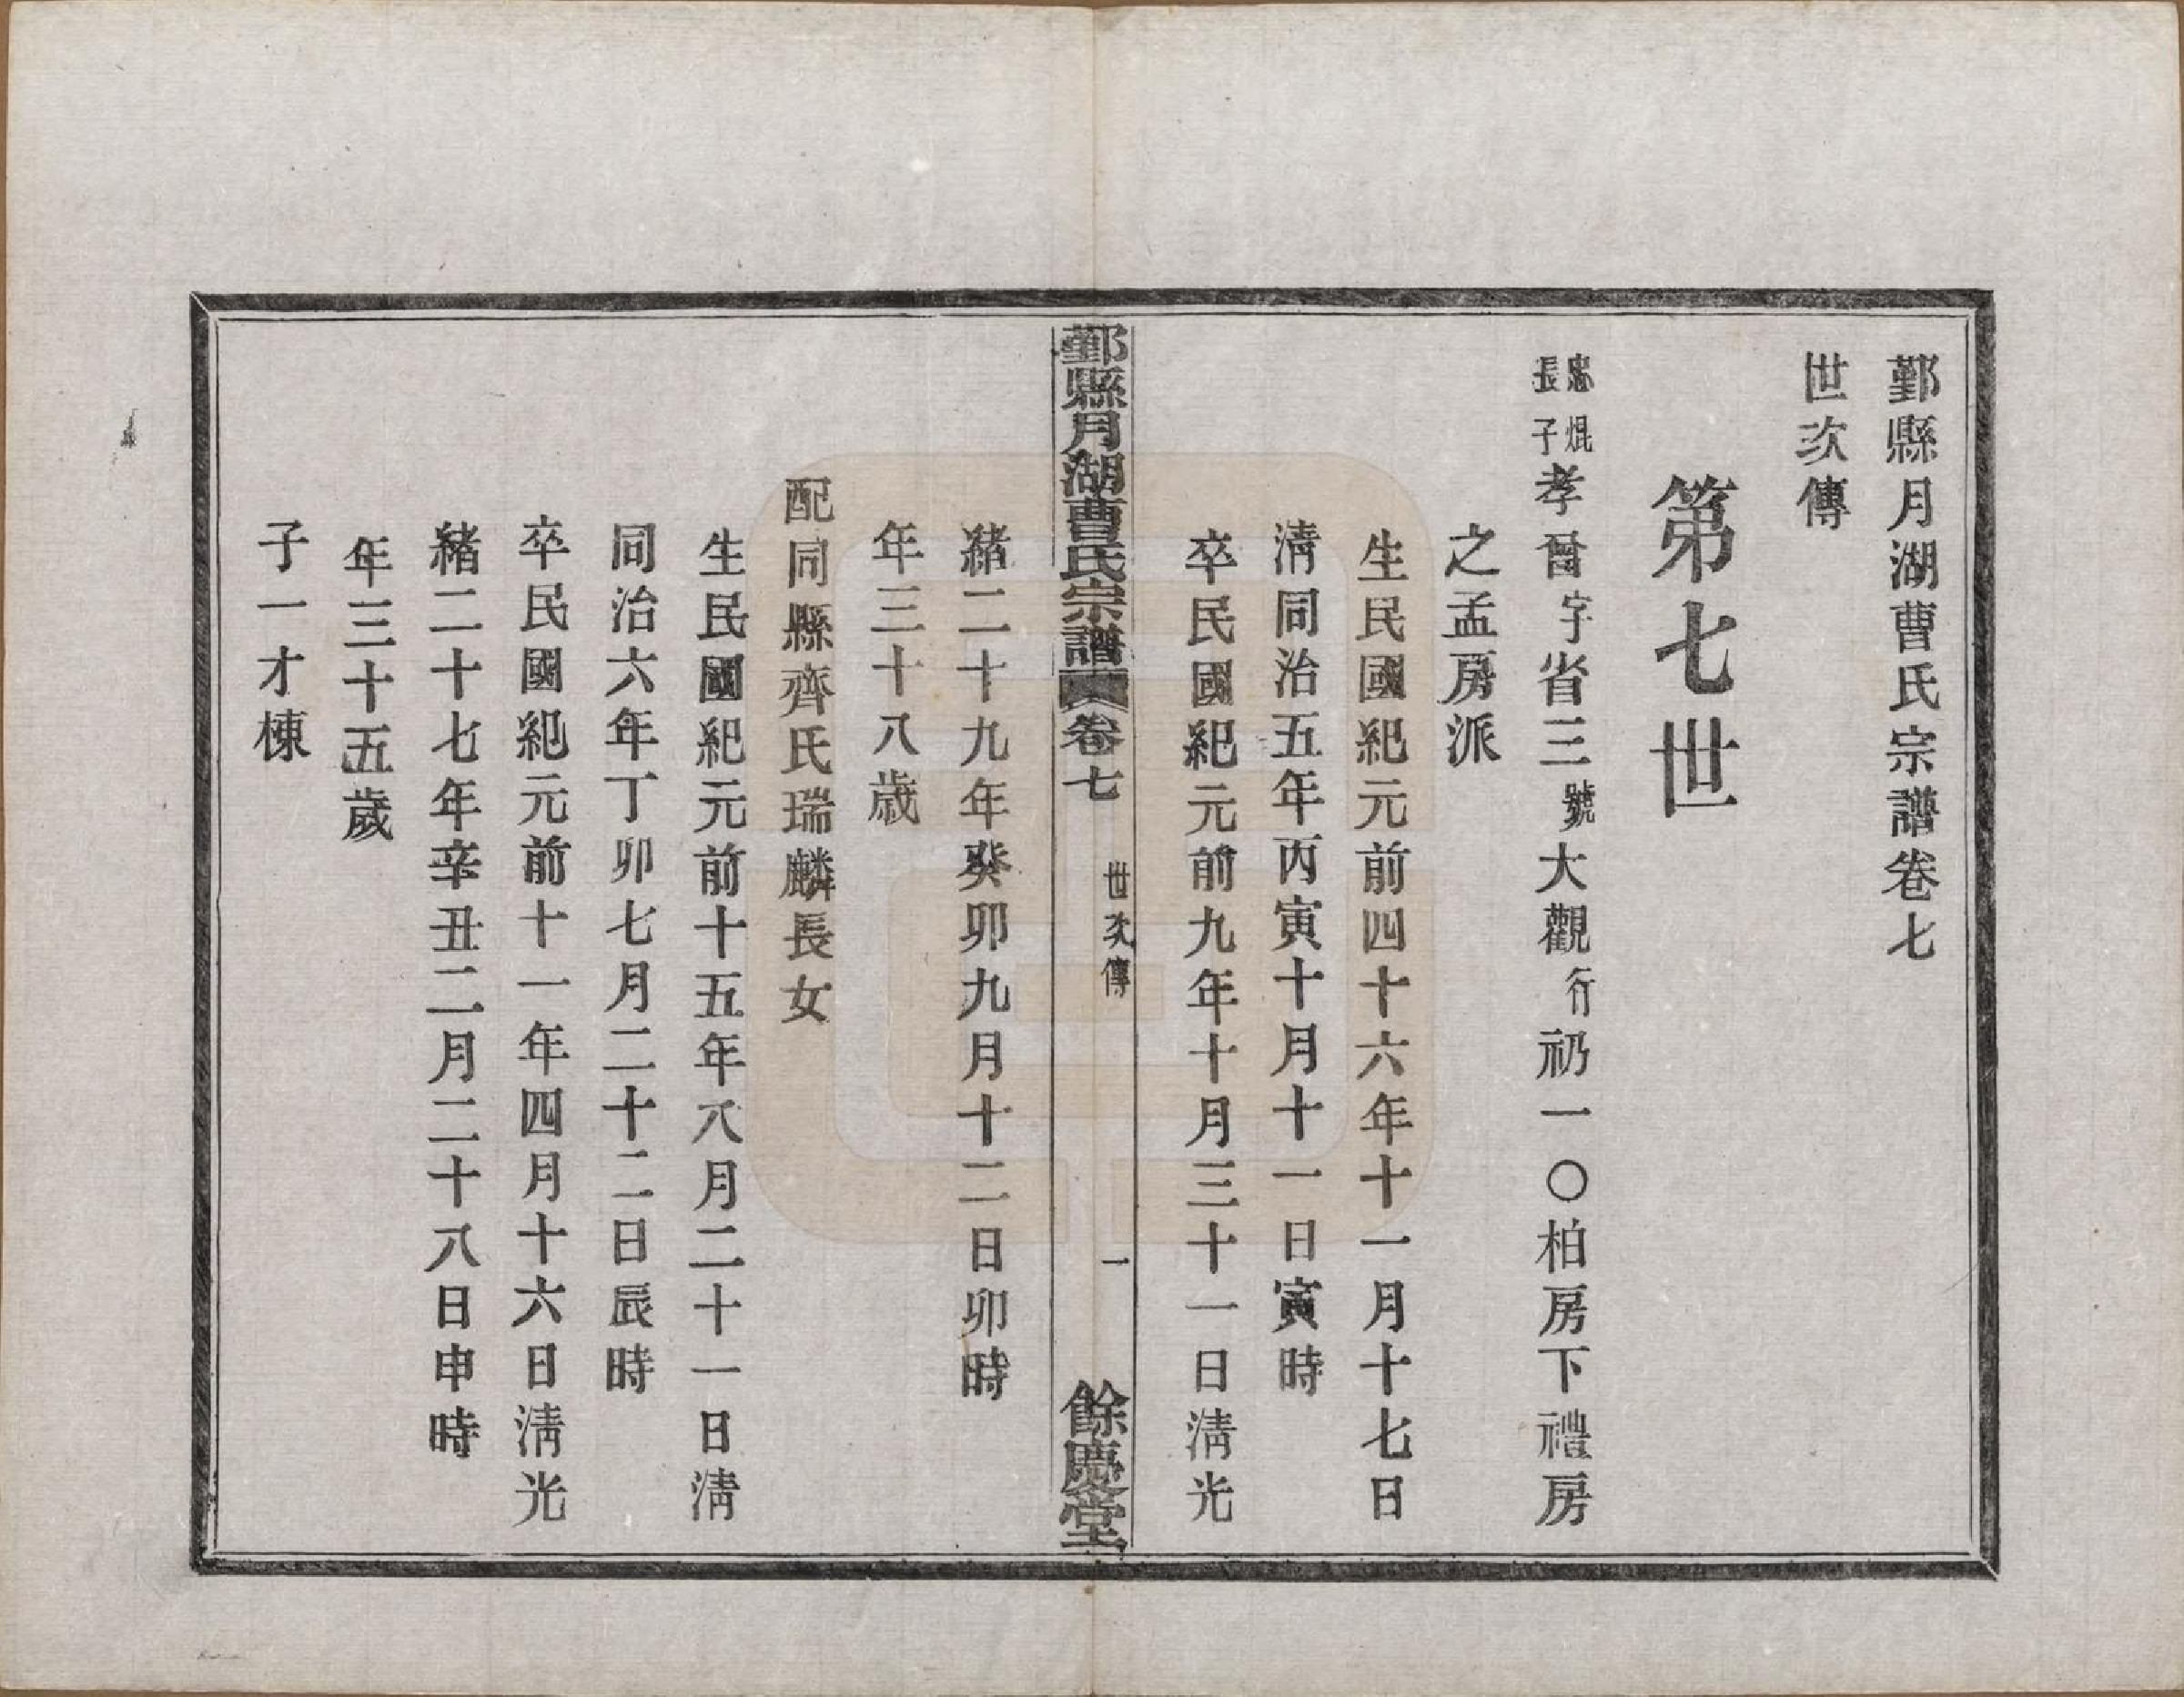 鄞縣月湖曹氏宗譜卷七
世次傳
第七世
忠焜
長子
孝晉字省三號大觀行礽一〇柏房下禮房
之孟房派
生民國紀元前四十六年十一月十七日
淸同治五年丙寅十月十一日寅時
卒民國紀元前九年十月三十一日淸光
鄞縣月湖曹氏宗譜 卷七 世次傳 一 餘慶堂
緒二十九年癸卯九月十二日卯時
年三十八歲
配同縣齊氏瑞麟長女
生民國紀元前十五年八月二十一日淸
同治六年丁卯七月二十二日辰時
卒民國紀元前十一年四月十六日淸光
緒二十七年辛丑二月二十八日申時
年三十五歲
子一才棟